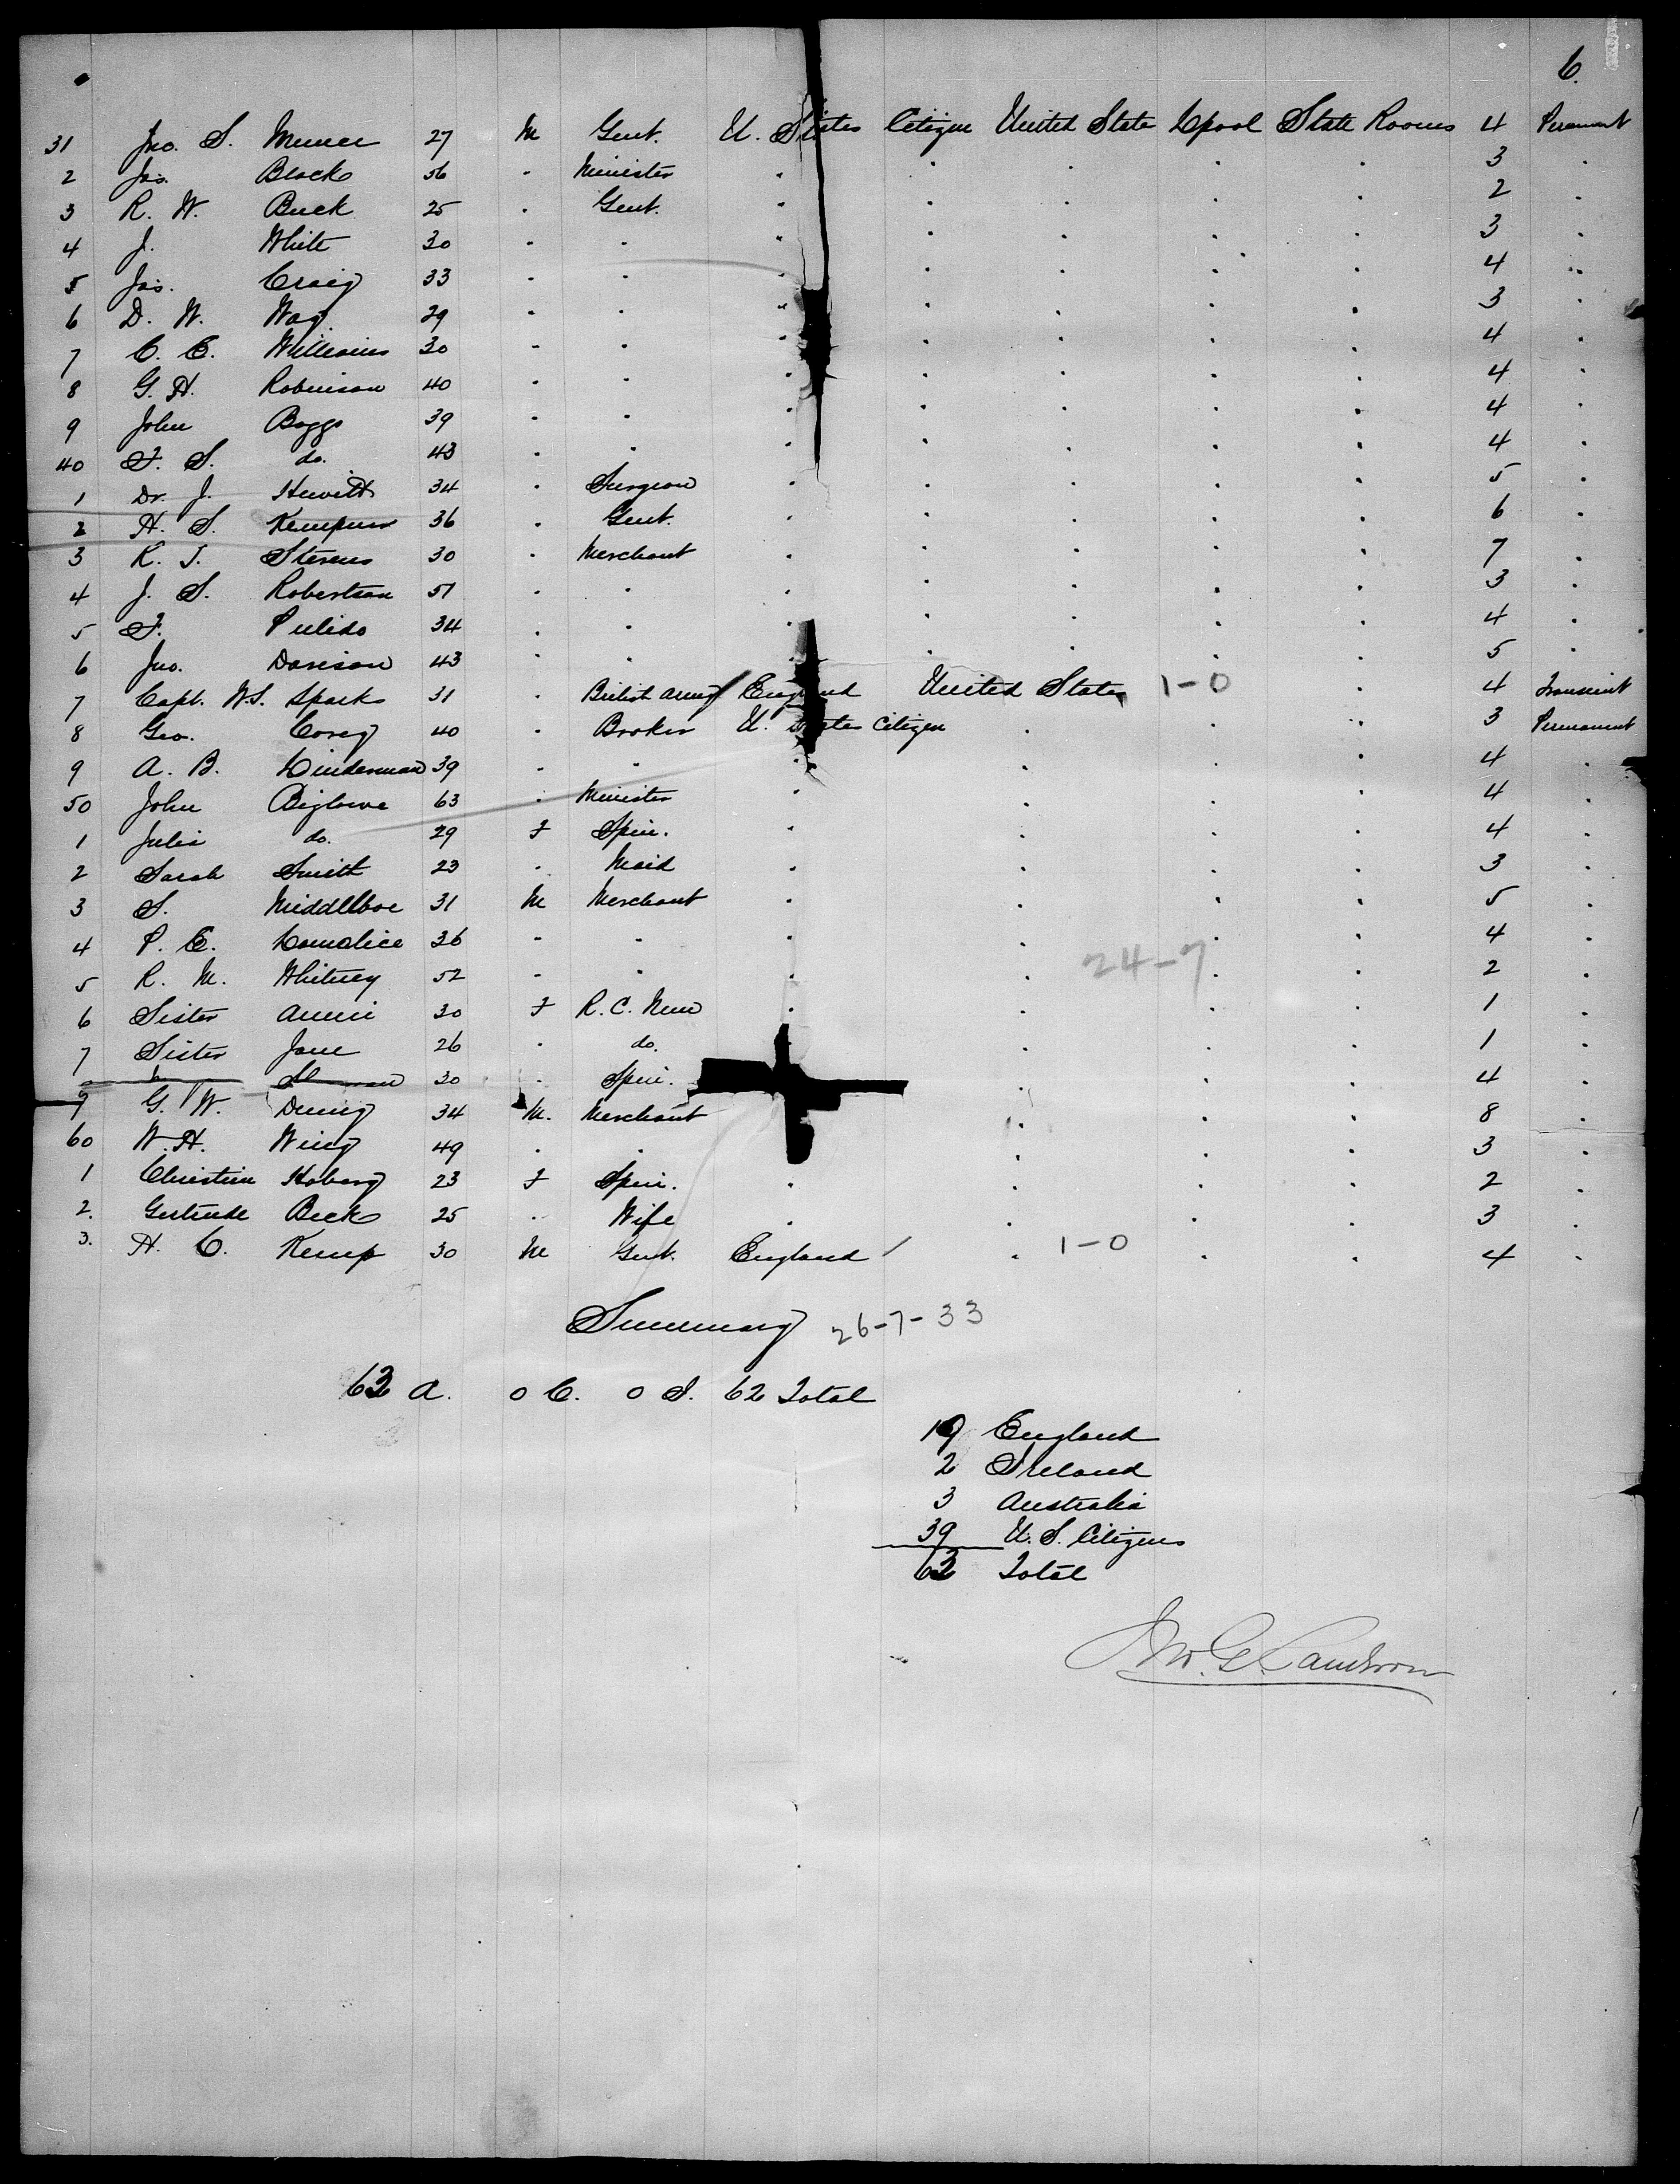 6.
31 Jno. S. 27 M Gent. U. States Citizen United State Lpool State Rooms 4 Permanent
2 Jas. Black 56 " Minister " " " " " 3 "
3 R. W. Buck 25 " Gent. " " " " " 2 "
4 J. White 30 " " " " " " " 3 "
5 Jas. Craig 33 " " " " " " " 4 "
6 D. W. Way 29 " " " " " " " 3 "
7 C. E. Williams 30 " " " " " " " 4 "
8 G. H. Robinson 40 " " " " " " " 4 "
9 John Boggs 39 " " " " " " " 4 "
40 F. S. do. 43 " " " " " " " 4 "
1 Dr. J. Hewitt 34 " Surgeon " " " " " 5 "
2 H. S. 36 " Gent. " " " " " 6 "
3 R. J. Stevens 30 " Merchant " " " " " 7 "
4 J. S. Robertson 51 " " " " " " " 3 "
5 F. Pulido 34 " " " " " " " 4 "
6 Jno. Davison 43 " " " " " " " 5 "
7 Capt. W.S. Sparks 31 " British Army England United States 1-0 " 4 Transient
8 Geo. Corey 40 " Broker U. States Citizen " " " 3 Permanent
9 A. B. Linderman 39 " " " " " " 4 "
50 John Biglowe 63 " Minister " " " " 4 "
1 Julia do. 29 F Spin. " " " " 4 "
2 Sarah Smith 23 " Maid " " " " 3 "
3 S. Middlboe 31 M Merchant " " " " 5 "
4 P. E. 36 " " " " " " 4 "
24-7
5 R. M. Whitney 52 " " " " " " 2 "
6 Sister Annie 30 F R. C. Nun " " " " 1 "
7 Sister Jane 26 " do. " " " 1 "
30 " Spin. " " " 4 "
9 G. W. 34 M. Merchant " " " 8 "
60 W. H. Wing 49 " " " " " 3 "
1 Christine Hoberg 23 F Spin. " " " " 2 "
2. Gertrude Beck 25 " Wife " " " " 3 "
3. H. C. Kemp 30 M Gent. England / " 1-0 " " 4 "
Summary 26-7-33
63 A. 0 C. 0 I. 62 Total
19 England
2 Ireland
3 Australia
39 U. S. Citizens
63 Total